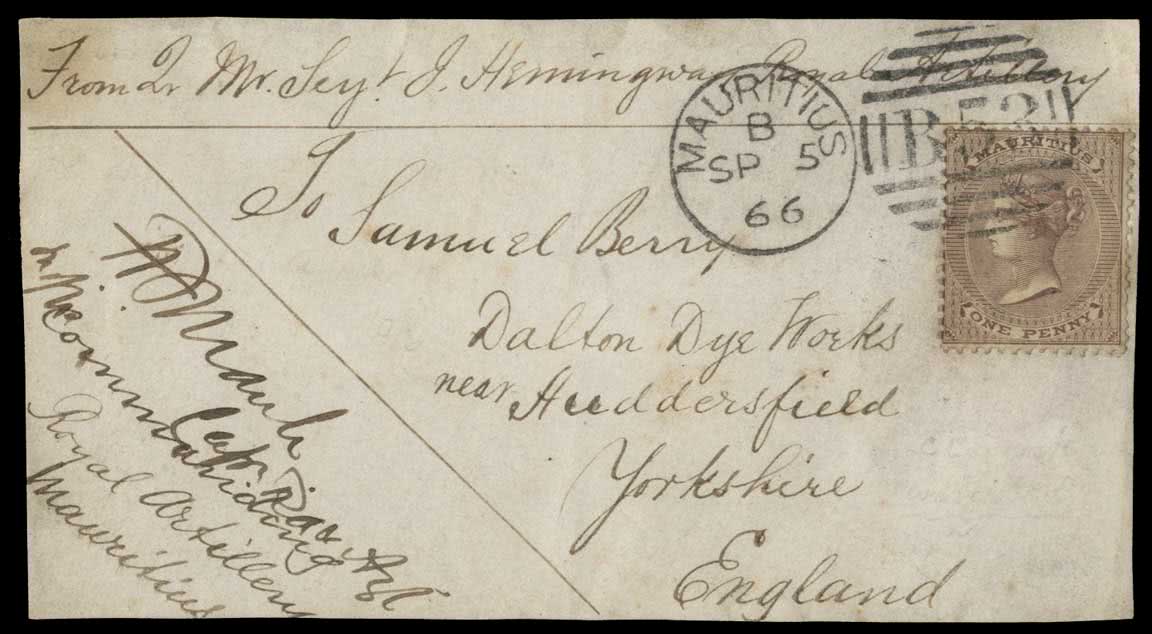 From Qr Mr. Sejt. J. Hemingway Royal Artillery
MAURITIUS
B
SP 5
66
B53
MAURITIUS
ONE PENNY
To
Samuel Berry
Dalton Dye Works
near Huddersfield
Yorkshire
England
Commanding
Royal Artillery
Mauritius